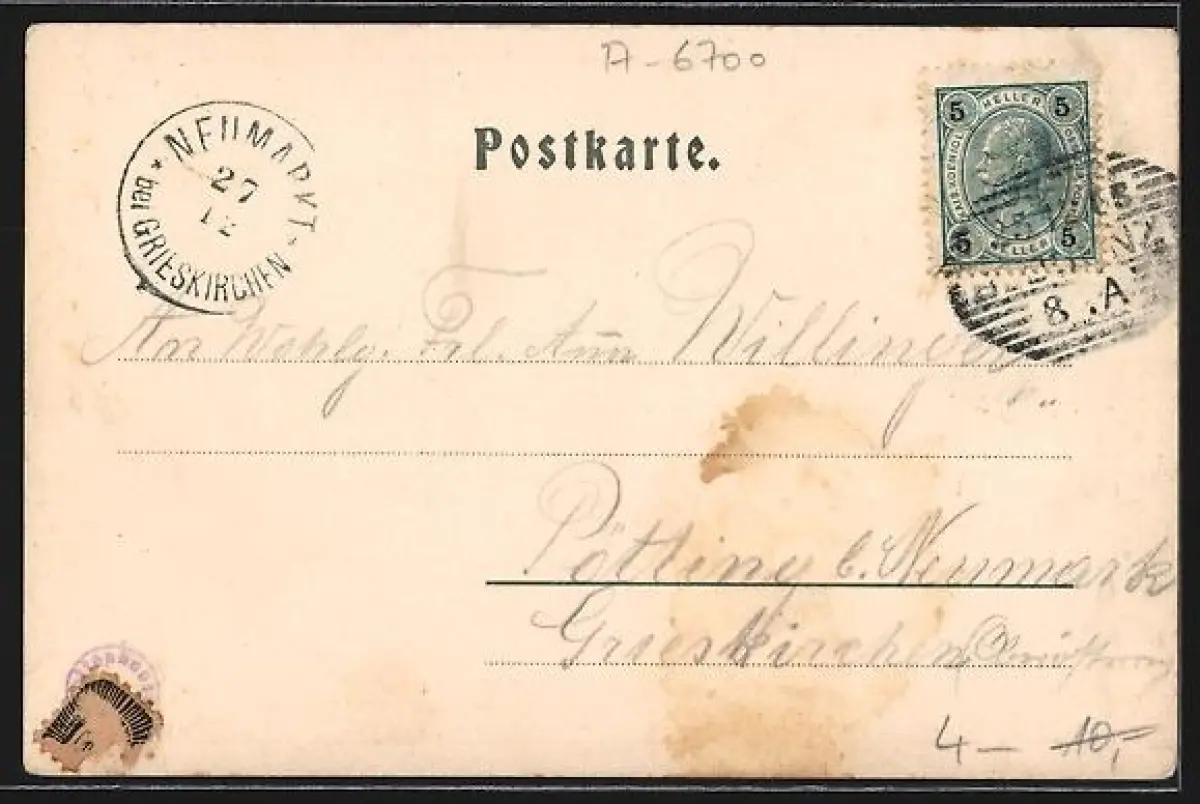 A-6700
Postkarte.
5 HELLER 5
5 HELLER 5
* NEUMARKT *
27
12
bei GRIESKIRCHEN
8. A
An Wohlg. Frl. Anna Willinger
Pötting b. Neumark
Grieskirchen,
4 — 10,-